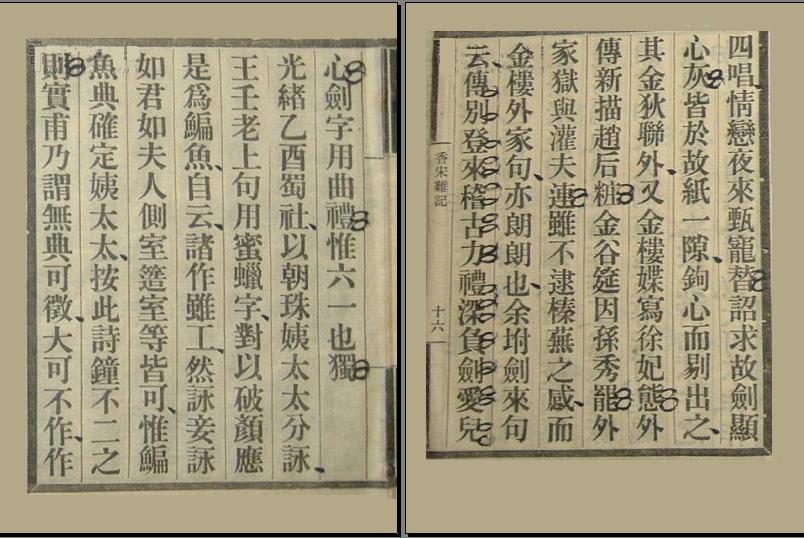 四唱情戀夜來甄寵替詔求故劍顯
心灰皆於故紙一隙、鉤心而剔出之、
其金狄聯外、又金樓媟寫徐妃態外
傳新描趙后粧金谷筵因孫秀罷外
家獄與灌夫連雖不逮榛蕪之感、而
金樓外家句、亦朗朗也、余坿劍來句
云、傳別登來稽古力禮深負劍愛兒
香宋雜記
十六
心劍字用曲禮惟六一也獨
光緒乙酉蜀社、以朝珠姨太太分詠、
王壬老上句用蜜蠟字、對以破顏應
是爲鯿魚、自云、諸作雖工、然詠妾詠
如君如夫人側室簉室等皆可、惟鯿
魚典確定姨太太、按此詩鐘不二之
則實甫乃謂無典可徵、大可不作、作